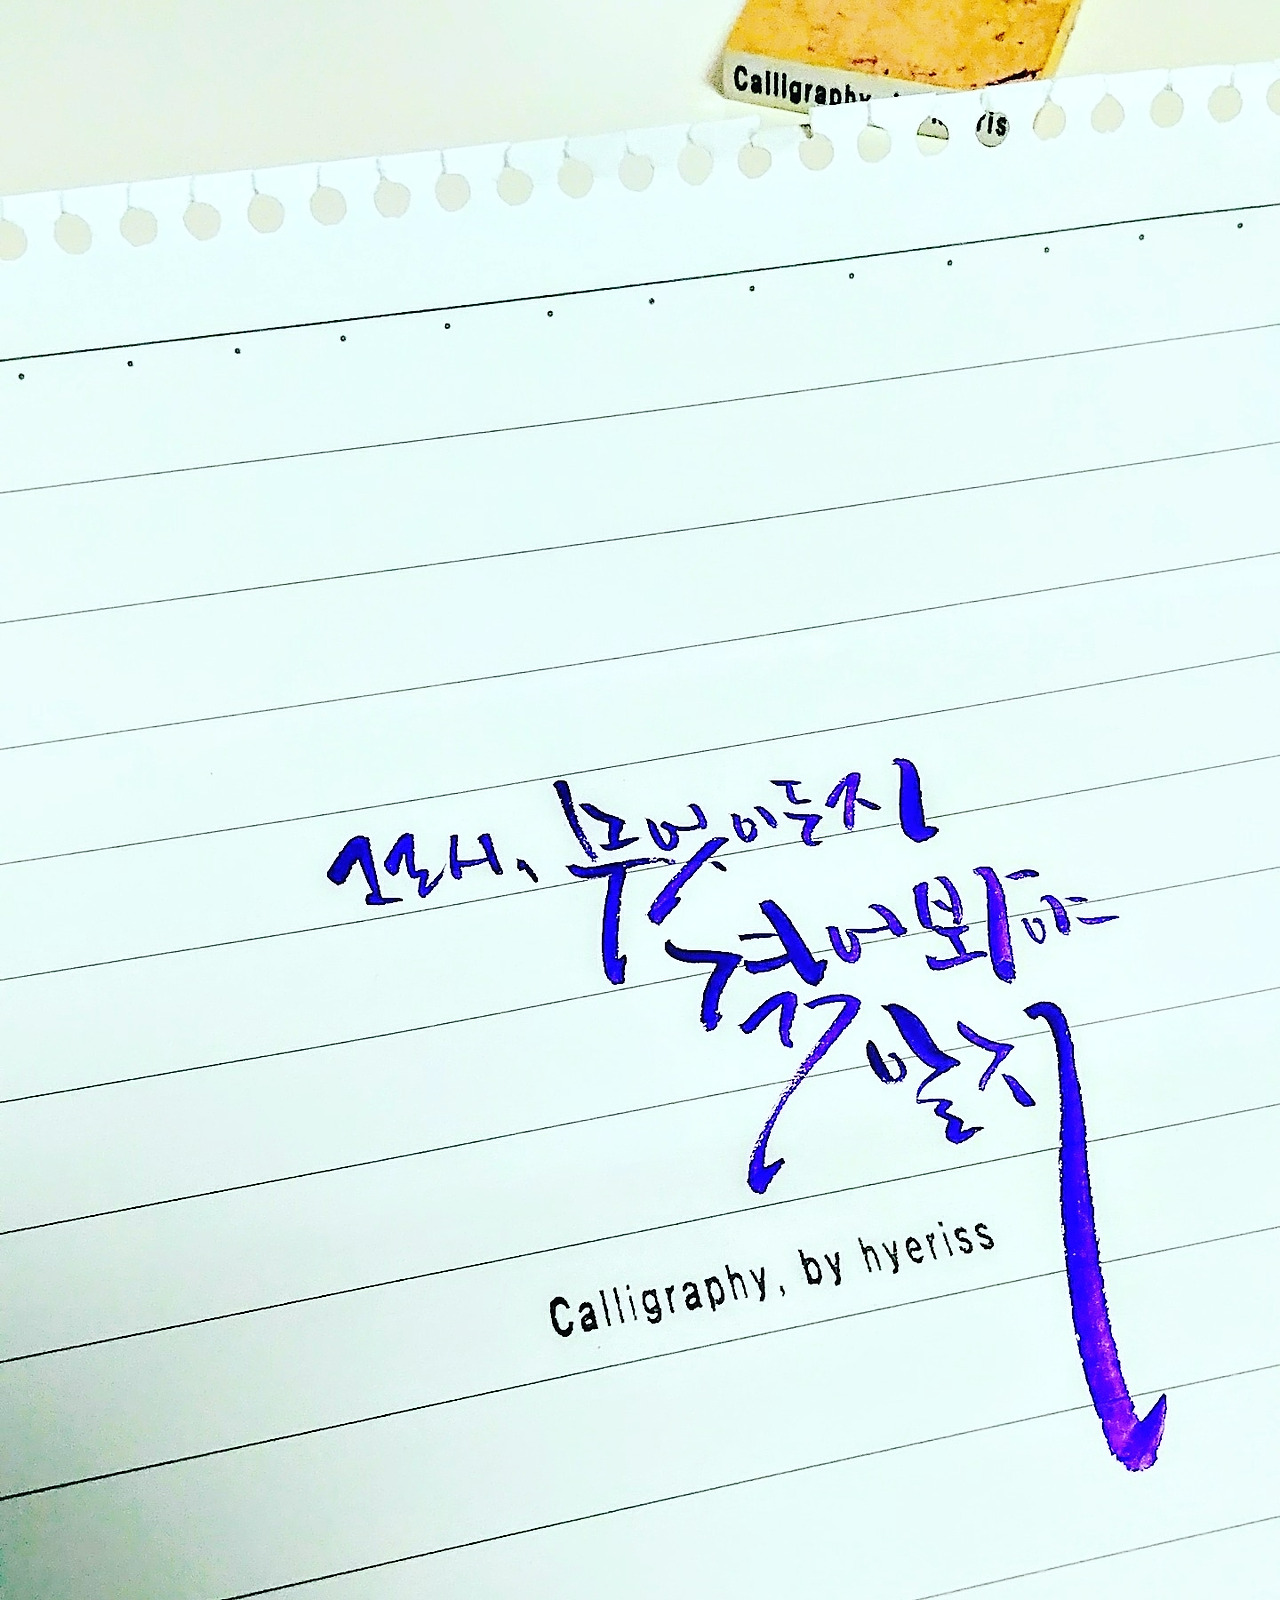 Calligraphy,
무엇이든지
겪어봐야
알지
Calligraphy, by hyeriss